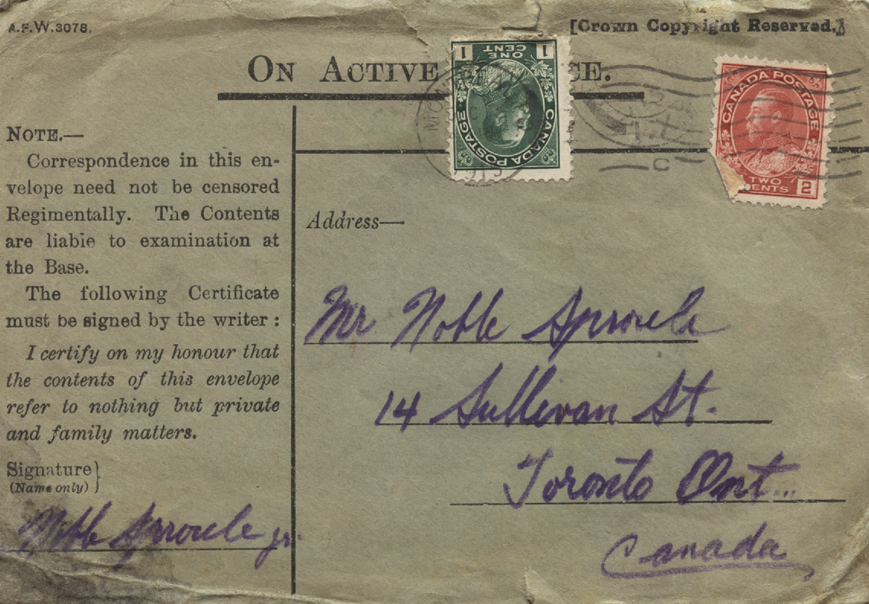 A.F.W.3078.
[Crown Copyright Reserved.]
ON ACTIVE GE.
ONE CENT
1 1
CANADA POSTAGE
CANADA POSTAGE
TWO CENTS 2
C
NOTE.—
Correspondence in this en-
velope need not be censored
Regimentally. The Contents
are liable to examination at
the Base.
The following Certificate
must be signed by the writer :
I certify on my honour that
the contents of this envelope
refer to nothing but private
and family matters.
Signature
(Name only)
Noble Sproule jr.
Address—
Mr Noble Sproule
14 Sullivan St.
Toronto Ont...
Canada